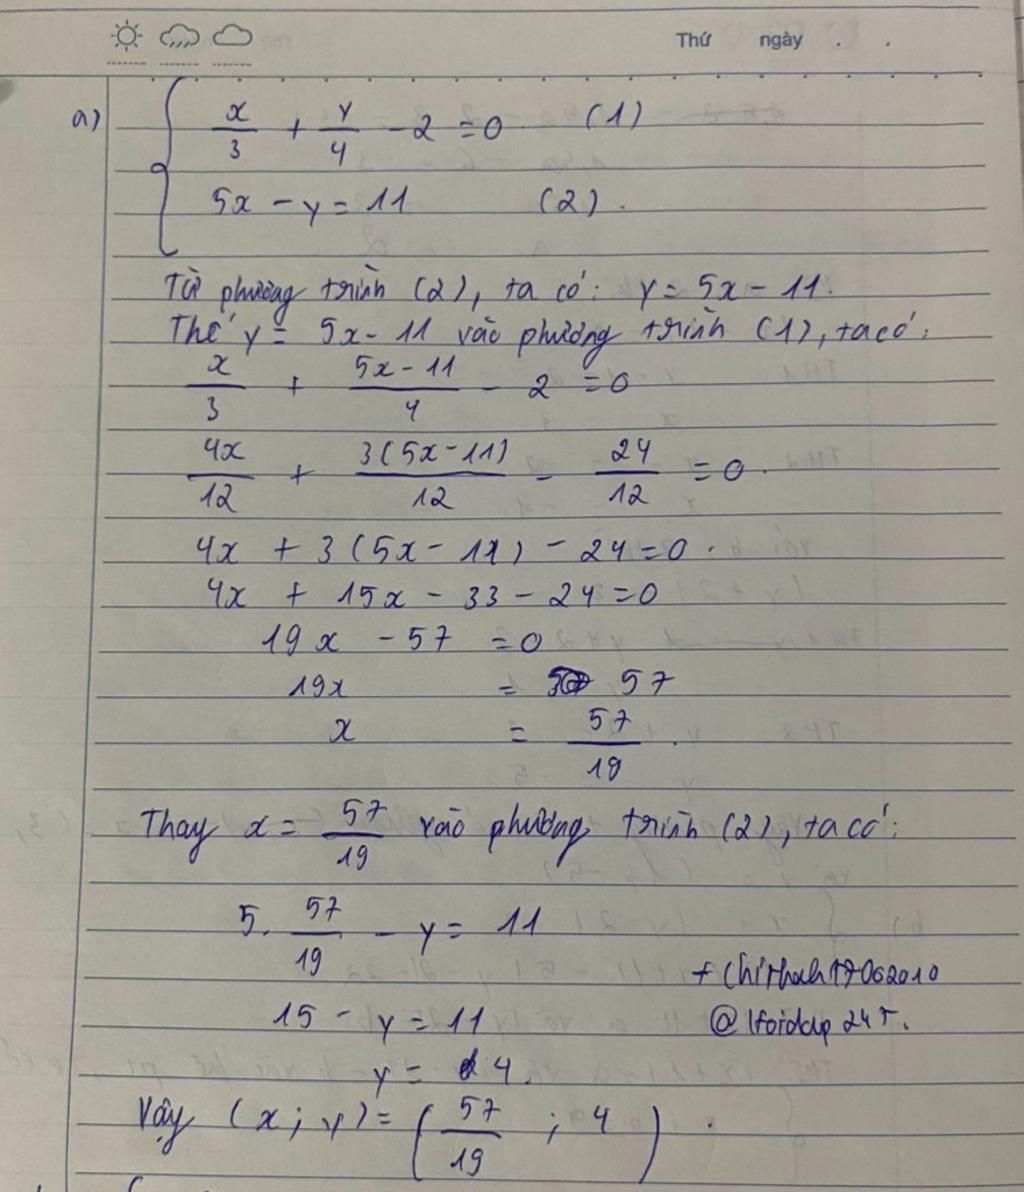 Thứ ngày . .
a) x/3 + y/4 - 2 = 0 (1)
5x - y = 11 (2).
Từ phương trình (2), ta có: y = 5x - 11.
Thế y = 5x - 11 vào phương trình (1), ta có:
x/3 + (5x - 11)/4 - 2 = 0
4x/12 + 3(5x - 11)/12 - 24/12 = 0.
4x + 3(5x - 11) - 24 = 0.
4x + 15x - 33 - 24 = 0
19x - 57 = 0
19x = 57
x = 57/19.
Thay x = 57/19 vào phương trình (2), ta có:
5. 57/19 - y = 11
15 - y = 11
y = 4.
Vậy (x; y) = (57/19 ; 4).